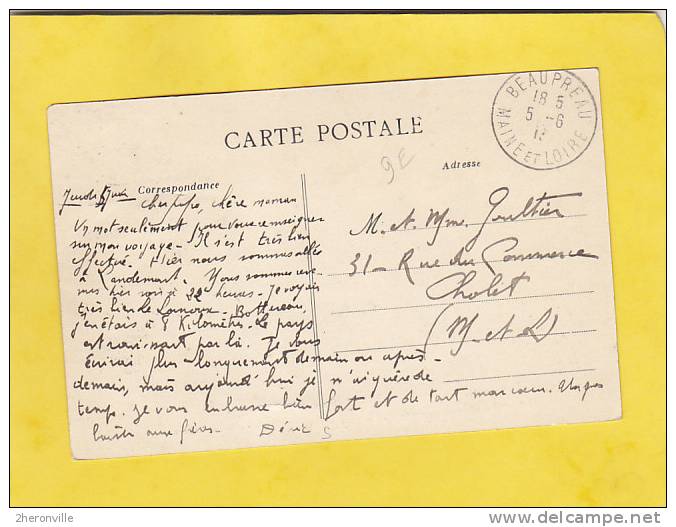 BEAUPREAU
18 5
5 -6
MAINE ET LOIRE
CARTE POSTALE
9€
Correspondance
Adresse
Jeudi 5 Juin
Cher papa, chère maman
Un mot seulement pour vous renseigner
sur mon voyage - Il s'est très bien
effectué. Hier nous sommes allés
à Landemont. Nous sommes
hier soir à 22 heures - Je voyais
très bien
j'en étais à 8 Kilomètres. Le pays
est ravissant par là. Je vous
écrirai plus longuement demain ou après-
demain, mais aujourd'hui je n'ai guère de
temps. Je vous embrasse bien fort et de tout mon coeur.
M. et Mme. Gaultier
31 - Rue du Commerce
Cholet
(M. et L)
2heronville
http://www.delcampe.net